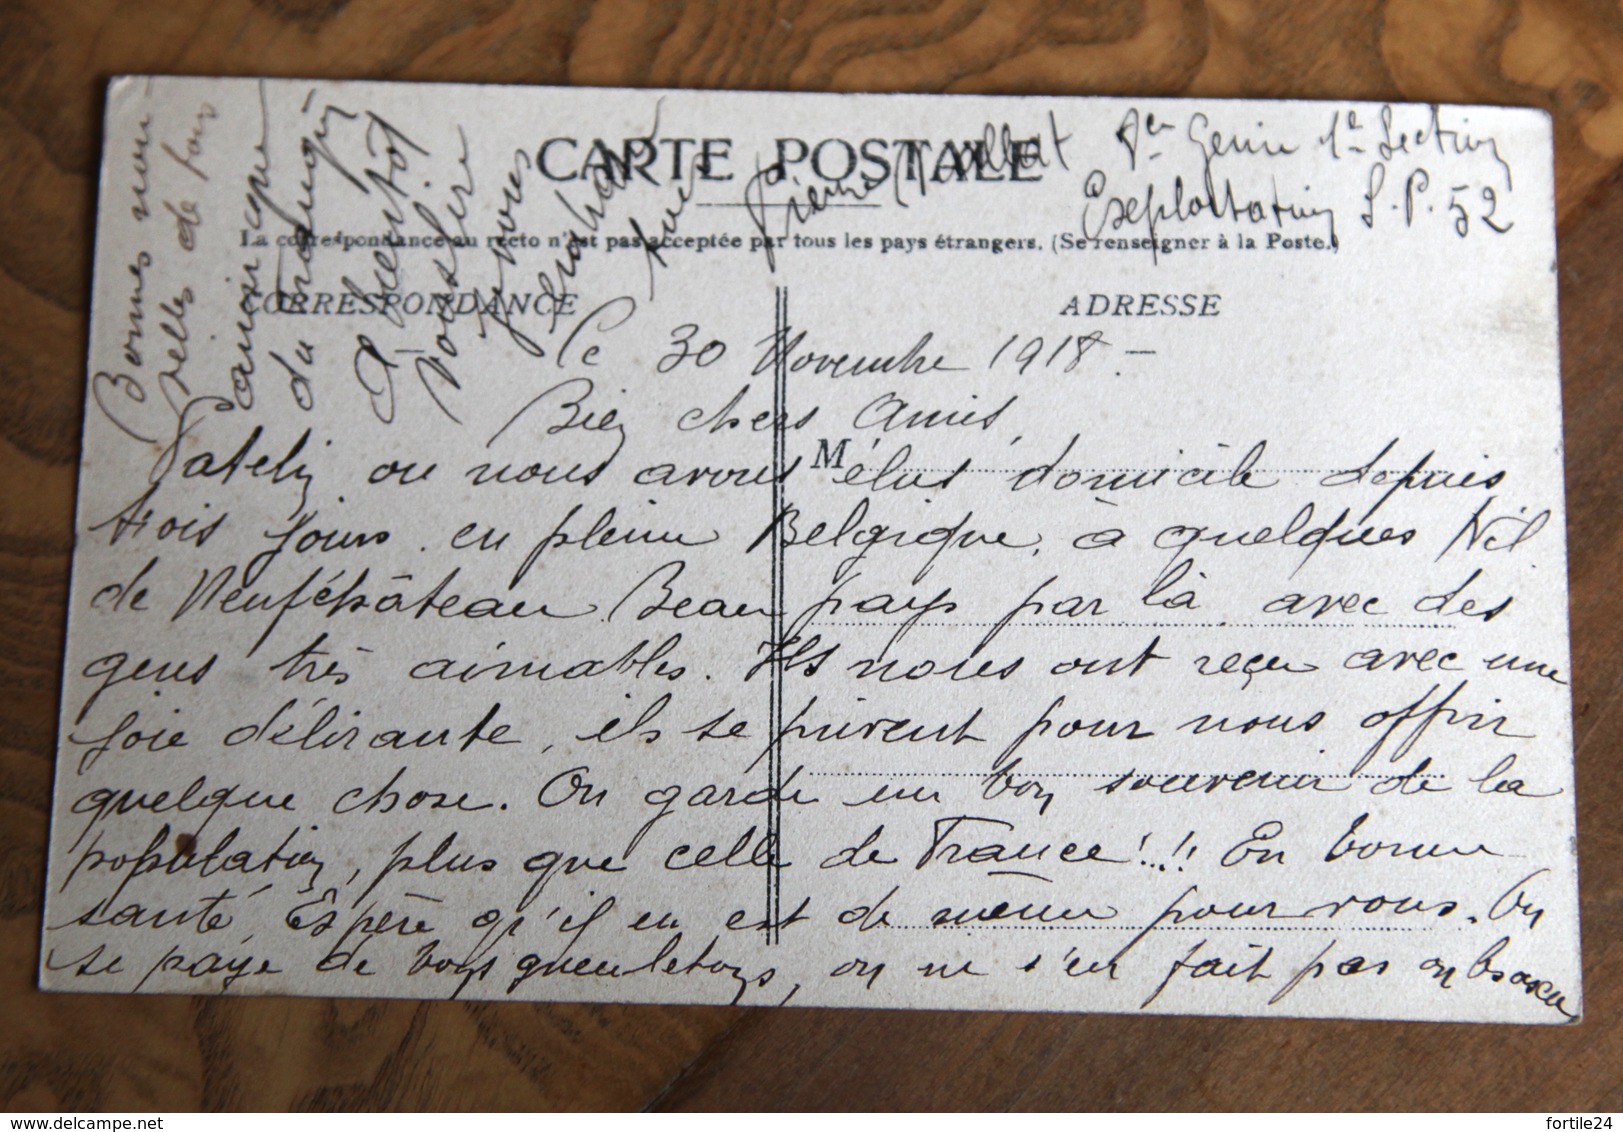 CARTE POSTALE
Pierre 8e Genie 1e Section
Exploitation S.P. 52
La correspondance au recto n'est pas acceptée par tous les pays étrangers. (Se renseigner à la Poste.)
CORRESPONDANCE
ADRESSE
Bonnes nou-
velles de
du
A bientôt
vous lire
Je vous
Le 30 Novembre 1918. -
Bien chers Amis,
M
Patelin ou nous avons élus domicile depuis
trois jours. en pleine Belgique, à quelques Kil
de Neufchâteau. Beau pays par là avec des
gens très aimables. Ils nous ont reçu avec une
joie délirante, ils se privent pour nous offrir
quelque chose. On garde un bon souvenir de la
population, plus que celle de France!..!! En bonne
santé, Espère qu'il en est de même pour vous. On
se paye de bons gueuletons, on ne s'en fait pas on
delcampe.net
fortile24